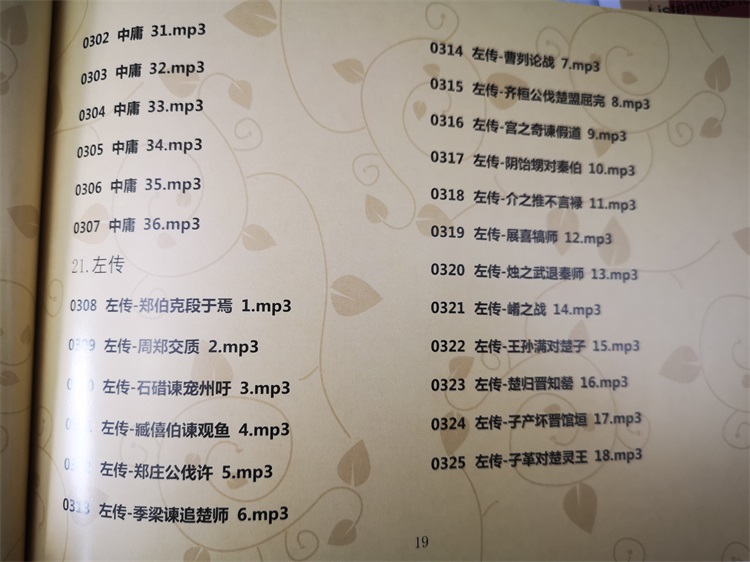 Listening
0302 中庸 31.mp3
0303 中庸 32.mp3
0304 中庸 33.mp3
0305 中庸 34.mp3
0306 中庸 35.mp3
0307 中庸 36.mp3
21.左传
0308 左传-郑伯克段于焉 1.mp3
0309 左传-周郑交质 2.mp3
0 左传-石碏谏宠州吁 3.mp3
左传-臧僖伯谏观鱼 4.mp3
左传-郑庄公伐许 5.mp3
0313 左传-季梁谏追楚师 6.mp3
0314 左传-曹刿论战 7.mp3
0315 左传-齐桓公伐楚盟屈完 8.mp3
0316 左传-宫之奇谏假道 9.mp3
0317 左传-阴饴甥对秦伯 10.mp3
0318 左传-介之推不言禄 11.mp3
0319 左传-展喜犒师 12.mp3
0320 左传-烛之武退秦师 13.mp3
0321 左传-崤之战 14.mp3
0322 左传-王孙满对楚子 15.mp3
0323 左传-楚归晋知罃 16.mp3
0324 左传-子产坏晋馆垣 17.mp3
0325 左传-子革对楚灵王 18.mp3
19